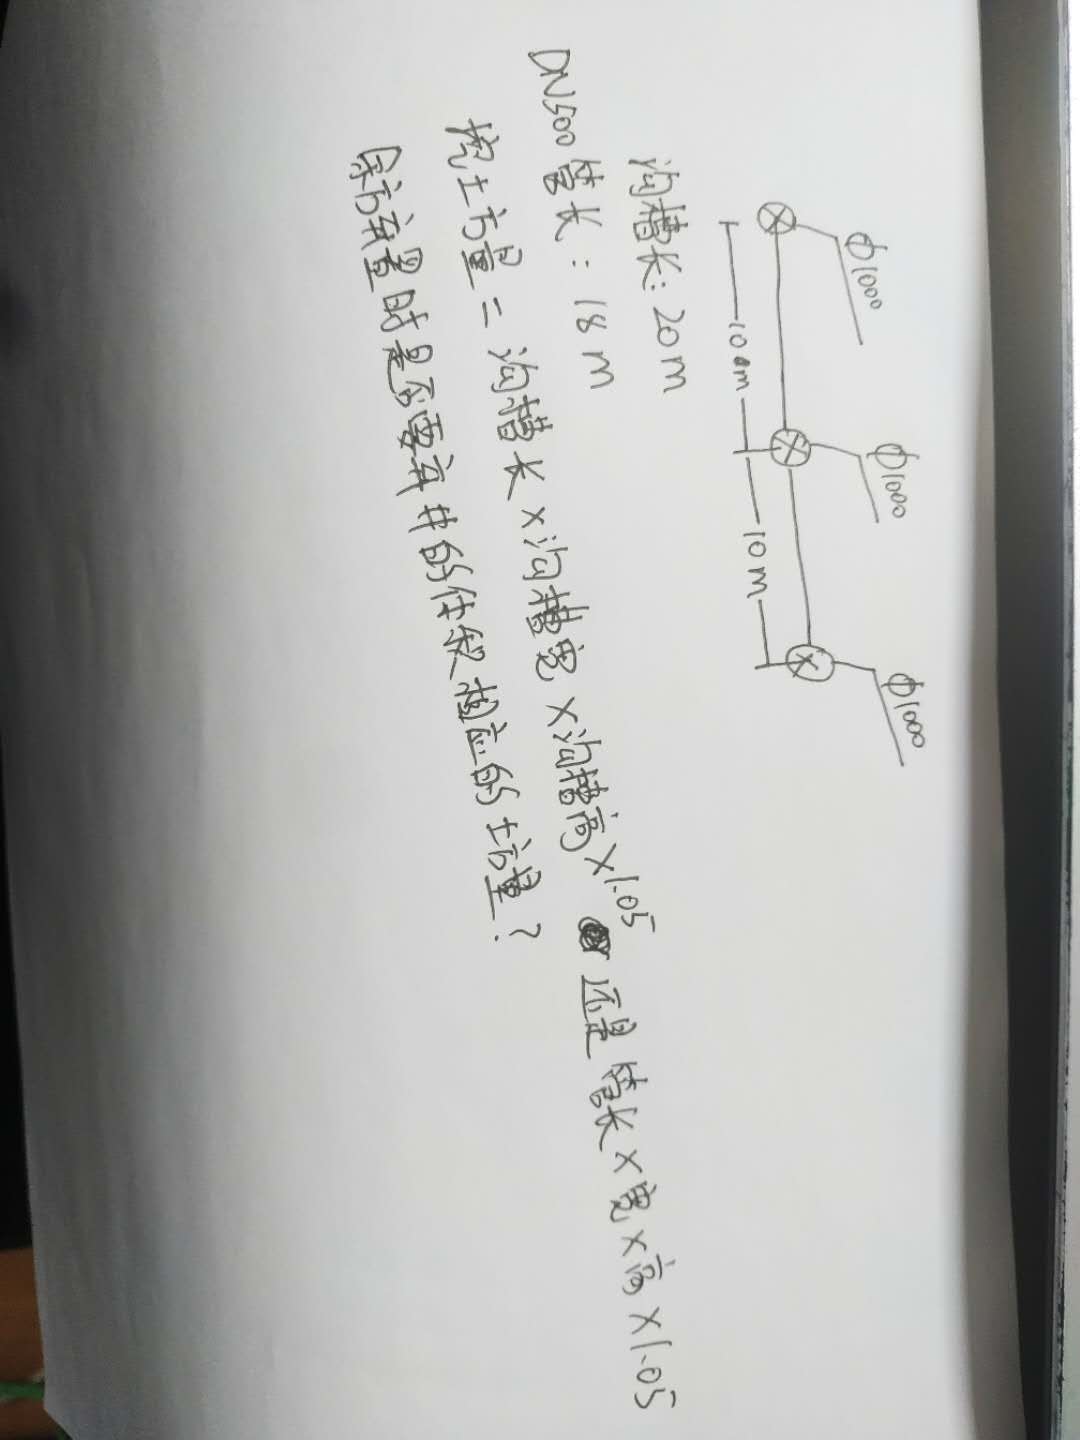 φ1000 φ1000 φ1000
10m 10m
沟槽长: 20m
DN500管长: 18m
挖土方量 = 沟槽长×沟槽宽×沟槽高×1.05 还是管长×宽×高×1.05
余方弃置时是否要弃井的体积相应的土方量?